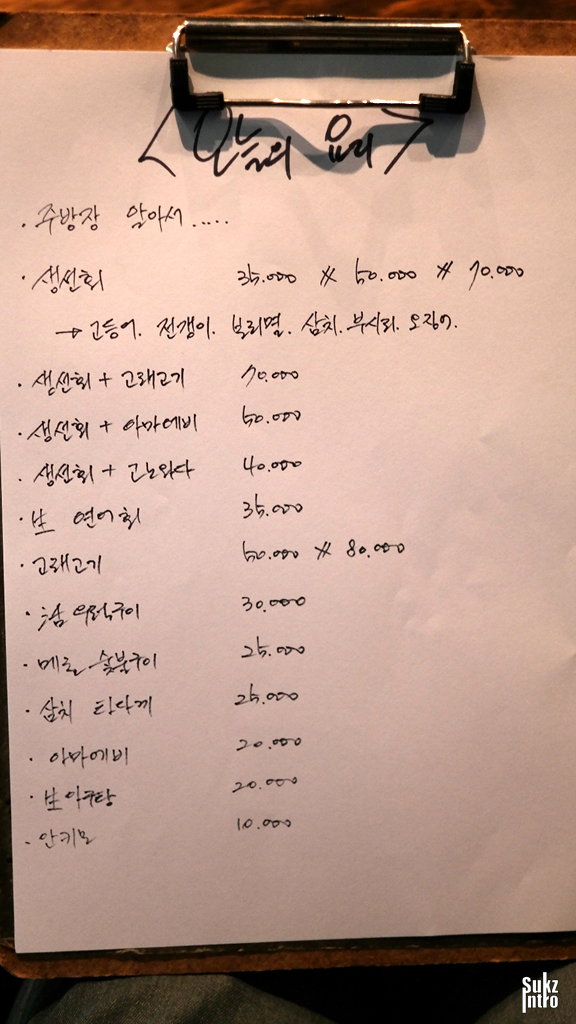 <오늘의 요리>
· 주방장 알아서.....
· 생선회 35.000 // 50.000 // 70.000
→ 고등어. 전갱이. 보리멸. 삼치. 부시리. 오징어.
· 생선회 + 고래고기 70.000
· 생선회 + 아마에비 50.000
· 생선회 + 고노와다 40.000
· 生 연어회 35.000
· 고래고기 50.000 // 80.000
· 우럭구이 30.000
· 메로 숯불구이 25.000
· 삼치 타다끼 25.000
· 아마에비 20.000
· 生 아구탕 20.000
· 안키모 10.000
Sukz
Intro